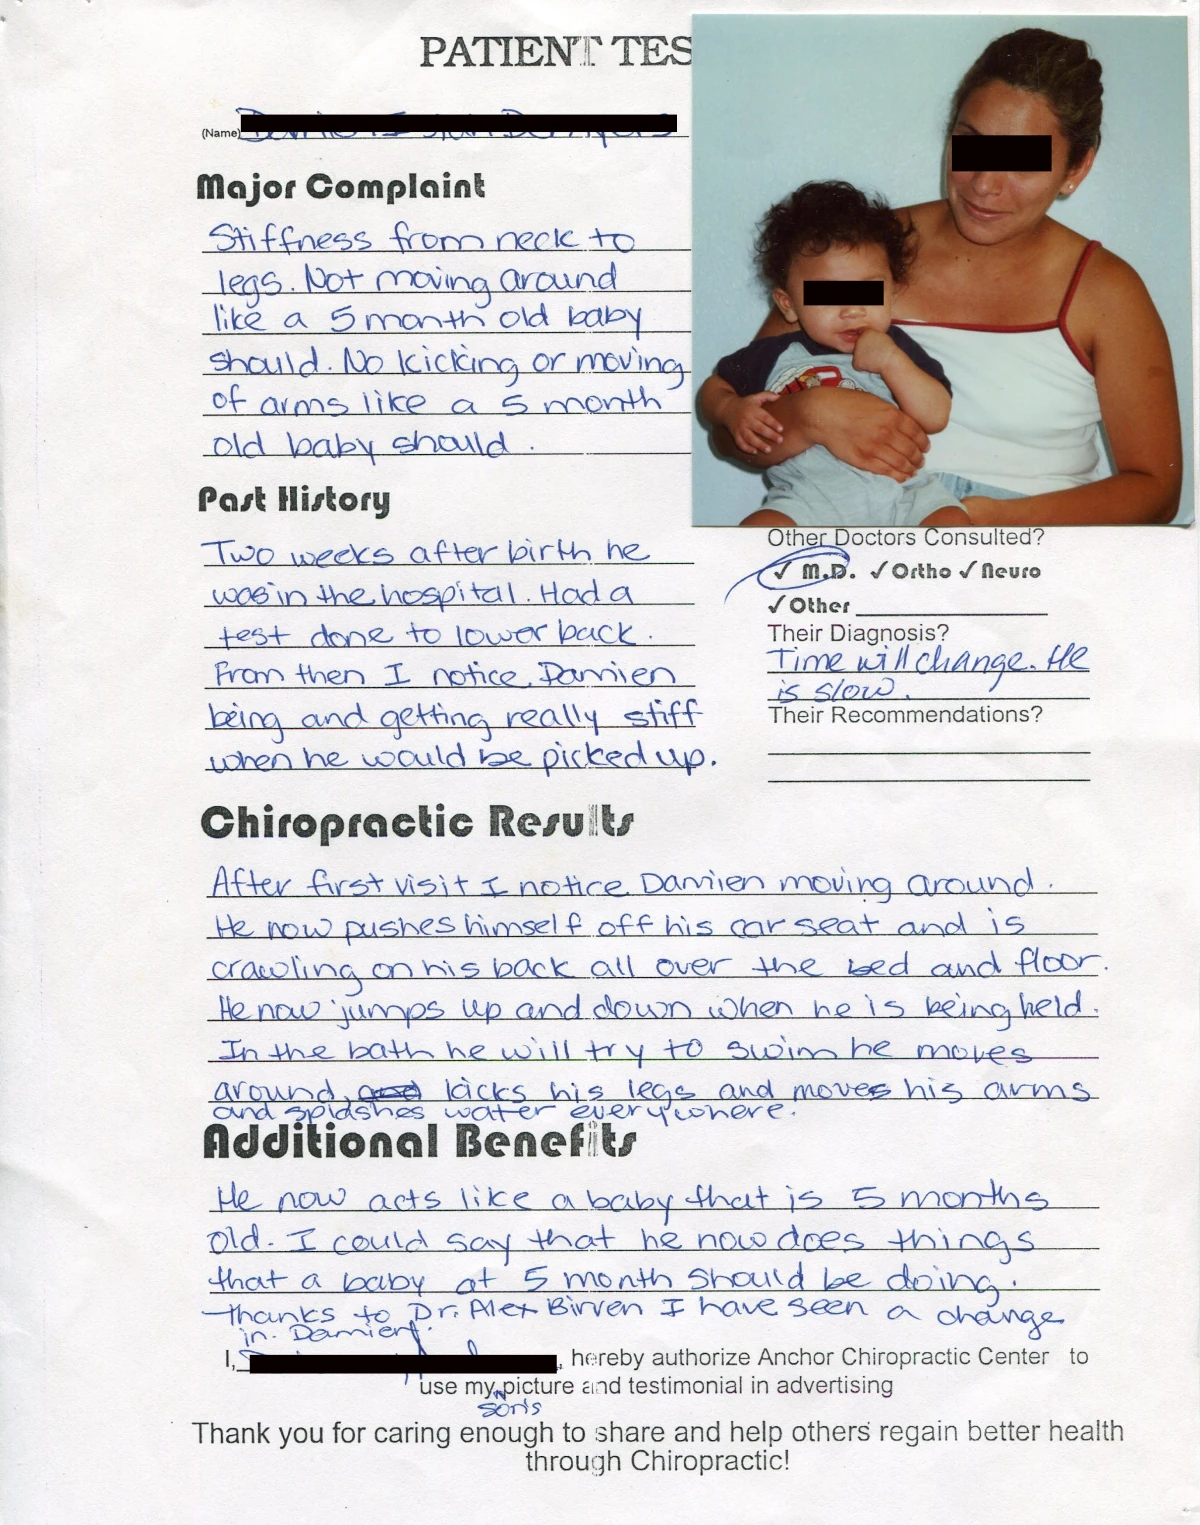 PATIENT TES
(Name)
Major Complaint
Stiffness from neck to
legs. Not moving around
like a 5 month old baby
should. No kicking or moving
of arms like a 5 month
old baby should.
Past History
Two weeks after birth he
was in the hospital. Had a
test done to lower back.
From then I notice Damien
being and getting really stiff
when he would be picked up.
Other Doctors Consulted?
✓ M.D. ✓ Ortho ✓ Neuro
✓ Other
Their Diagnosis?
Time will change. He
is slow.
Their Recommendations?
Chiropractic Results
After first visit I notice Damien moving around.
He now pushes himself off his car seat and is
crawling on his back all over the bed and floor.
He now jumps up and down when he is being held.
In the bath he will try to swim he moves
around, kicks his legs and moves his arms
and splashes water everywhere.
Additional Benefits
He now acts like a baby that is 5 months
old. I could say that he now does things
that a baby at 5 month should be doing.
Thanks to Dr. Alex Birven I have seen a change
in Damien.
I, , hereby authorize Anchor Chiropractic Center to
use my picture and testimonial in advertising
son's
Thank you for caring enough to share and help others regain better health
through Chiropractic!